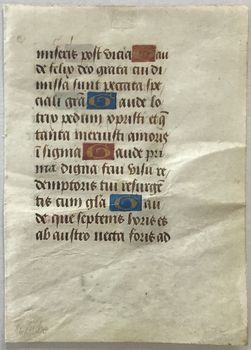 miseris post vicia Gau
de felix deo grata cui di
missa sunt peccata spe
ciali gra Gaude lo
trix pedum xpristi et q
tanta meruisti amoris
isignia Gaude pri
ma digna fau visu re
demptoris tui resurge
tis cum gla Gau
de que septenis horis es
ab austro vecta foris ad